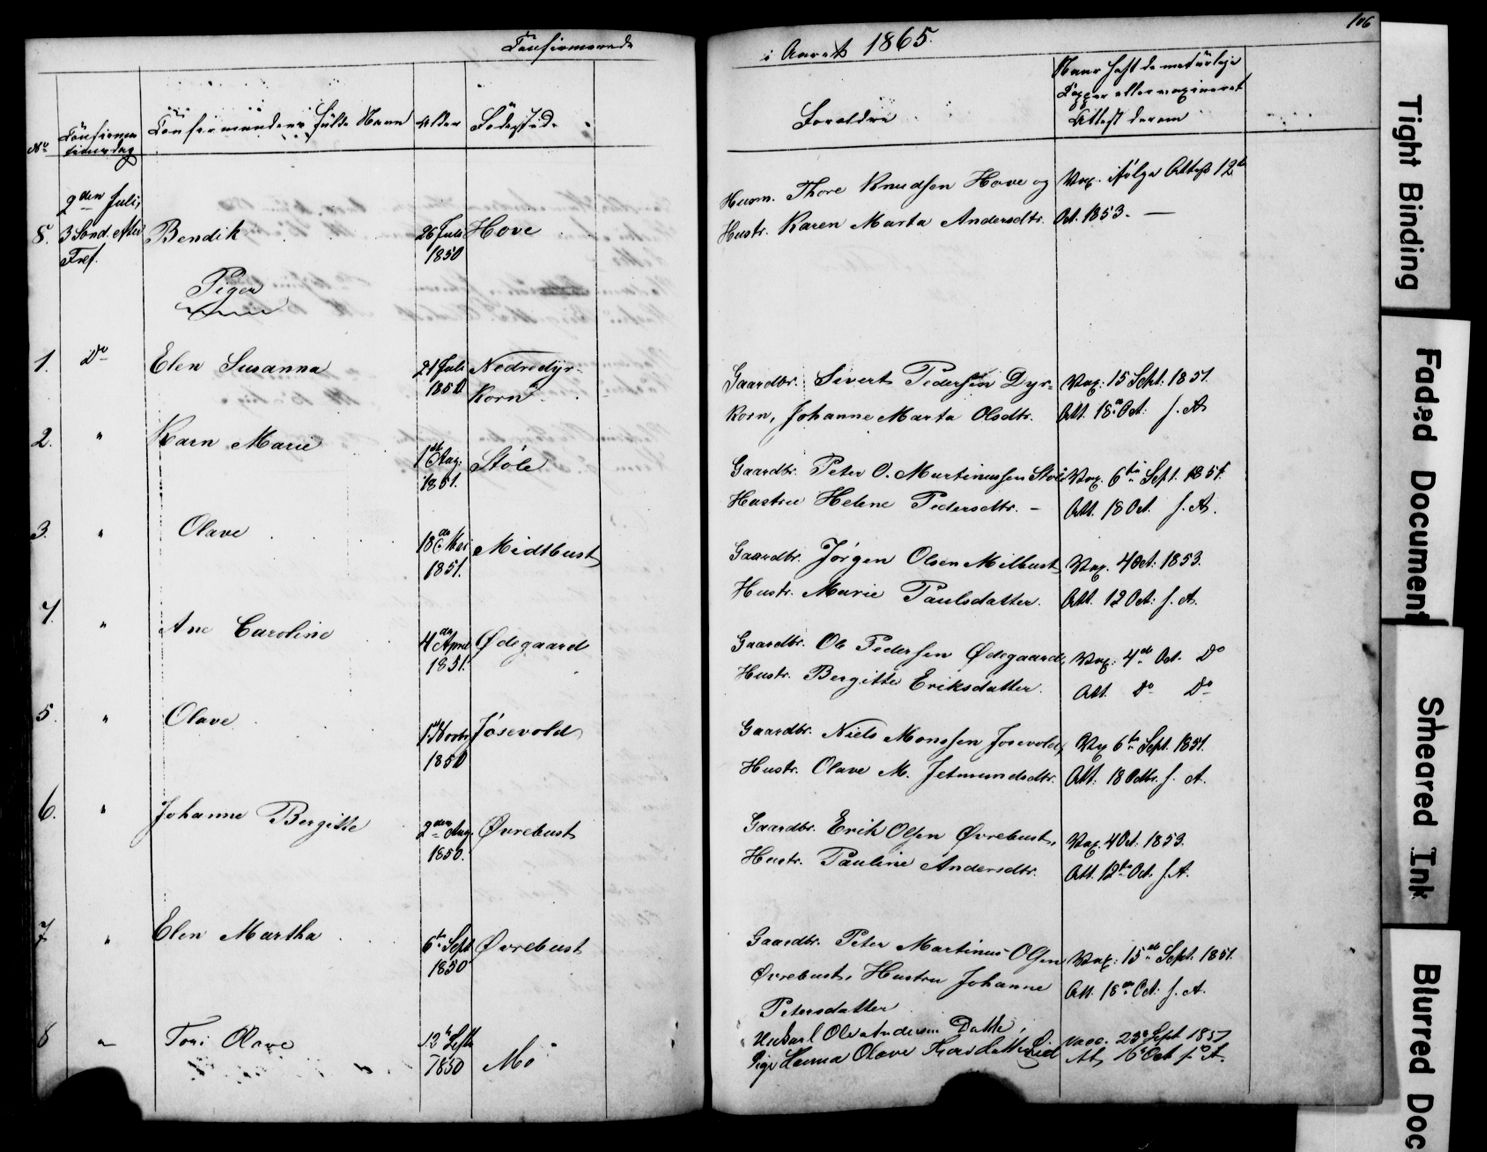 Confirmerede
i Aaret 1865.
106
No
Confirmationsdag
Confirmandens fulde Navn
Alder
Fødested
Forældre
Naar havt de naturlige
Kopper eller vaxineret
Attest derom
8.
2den Juli,
3 Sønd. efter
Tref.
Bendik
26 Juli
1850
Hove
Husm. Thore Knudsen Hove og
Hustr. Karen Marta Andersdtr.
Vax. ifølge Attest 12te
Oct. 1853. —
Piger
1.
Do
Elen Susanna
21 Juli
1850
Nedredyr-
korn
Gaardbr. Sivert Pedersen Dyr-
korn, Johanne Marta Olsdtr.
Vax: 15 Sept. 1851.
Att. 18de Oct. s. A.
2.
"
Karn Marie
1ste Aug.
1851.
Støle
Gaardbr. Peter O. Martinussen Støle
Hustru Helene Pedersdtr. –
Vax. 6te Sept. 1851.
Att. 18 Oct. s. A.
3.
"
Olave
18de Mai
1851.
Midtbust
Gaardbr. Jørgen Olsen Mitbust,
Hustr. Marie Paulsdatter.
Vax. 4 Oct. 1853.
Att. 12 Oct. s. A.
4.
"
Ane Caroline
4de April
1851.
Ødegaard
Gaardbr. Ole Pedersen Ødegaard,
Hustr. Bergitte Eriksdatter.
Vax. 4de Oct. Do
Att. Do Do
5.
"
Olave
1ste Novbr.
1850
Josevold
Gaardbr. Niels Monssen Josevold,
Hustr. Olave M. Jetmundsdtr.
Vax 6te Sept. 1851.
Att. 18 Octbr. s. A.
6.
"
Johanne Bergitte
2den Aug.
1850.
Øvrebust
Gaardbr. Erik Olsen Øvrebust,
Hustr. Pauline Andersdtr.
Vax. 4 Oct. 1853.
Att. 12te Oct. s. A.
7.
"
Elen Martha
6te Sept.
1850
Øvrebust
Gaardbr. Peter Martinus Olsen
Øvrebust, Hustru Johanne
Petersdatter
Vax: 15de Sept. 1851.
Att. 18de Oct. s. A.
8
"
Olave
13 Septb
1850
Mo
Ole Andersen Dahle,
Pige Hanna Olave
vacc. 23 Sept 1857
At, 16 Oct s. A.
Tight Binding
Faded Document
Smeared Ink
Blurred Doc